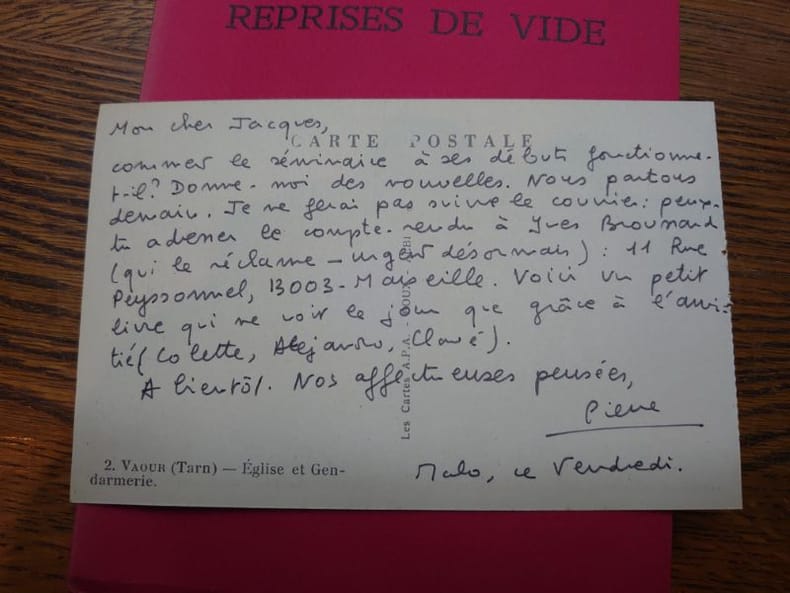 REPRISES DE VIDE
Mon cher Jacques,
CARTE POSTALE
comment le séminaire à ses débuts fonctionne-
t-il? Donne-moi des nouvelles. Nous partons
demain. Je ne ferai pas suivre le courrier : peux-
tu adresser le compte-rendu à Yves Broussard
(qui le réclame – urgent désormais) : 11 Rue
Peyssonnel, 13003-Marseille. Voici un petit
livre qui ne voit le jour que grâce à l'ami-
tié (Colette, Alejandro, Clavé).
A bientôt. Nos affectueuses pensées,
Pierre
Malo, ce Vendredi.
Les Cartes A.P.A. -
2. VAOUR (Tarn) — Église et Gen-
darmerie.